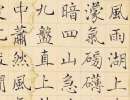 風雨湖上
濛氣
暗四山急
九盤真上
中蕭然風